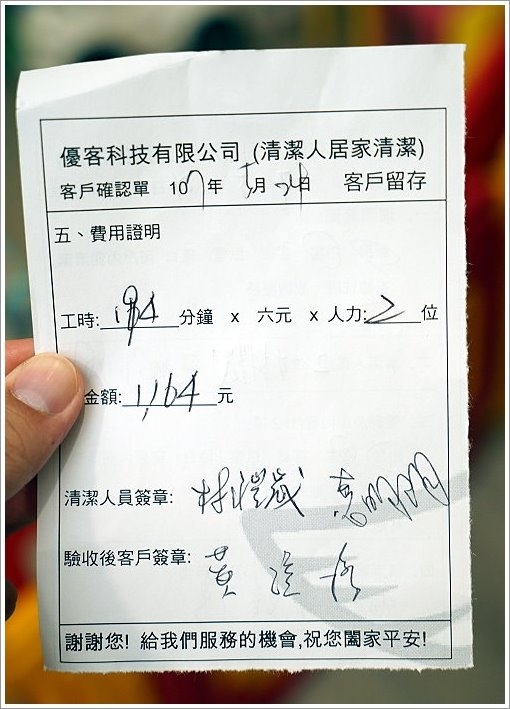 優客科技有限公司 (清潔人居家清潔)
客戶確認單 107年 5月 24日 客戶留存
五、費用證明
工時: 194 分鐘 x 六元 x 人力: 2 位
金額: 1,164 元
清潔人員簽章:
驗收後客戶簽章: 黃
謝謝您! 給我們服務的機會,祝您闔家平安!